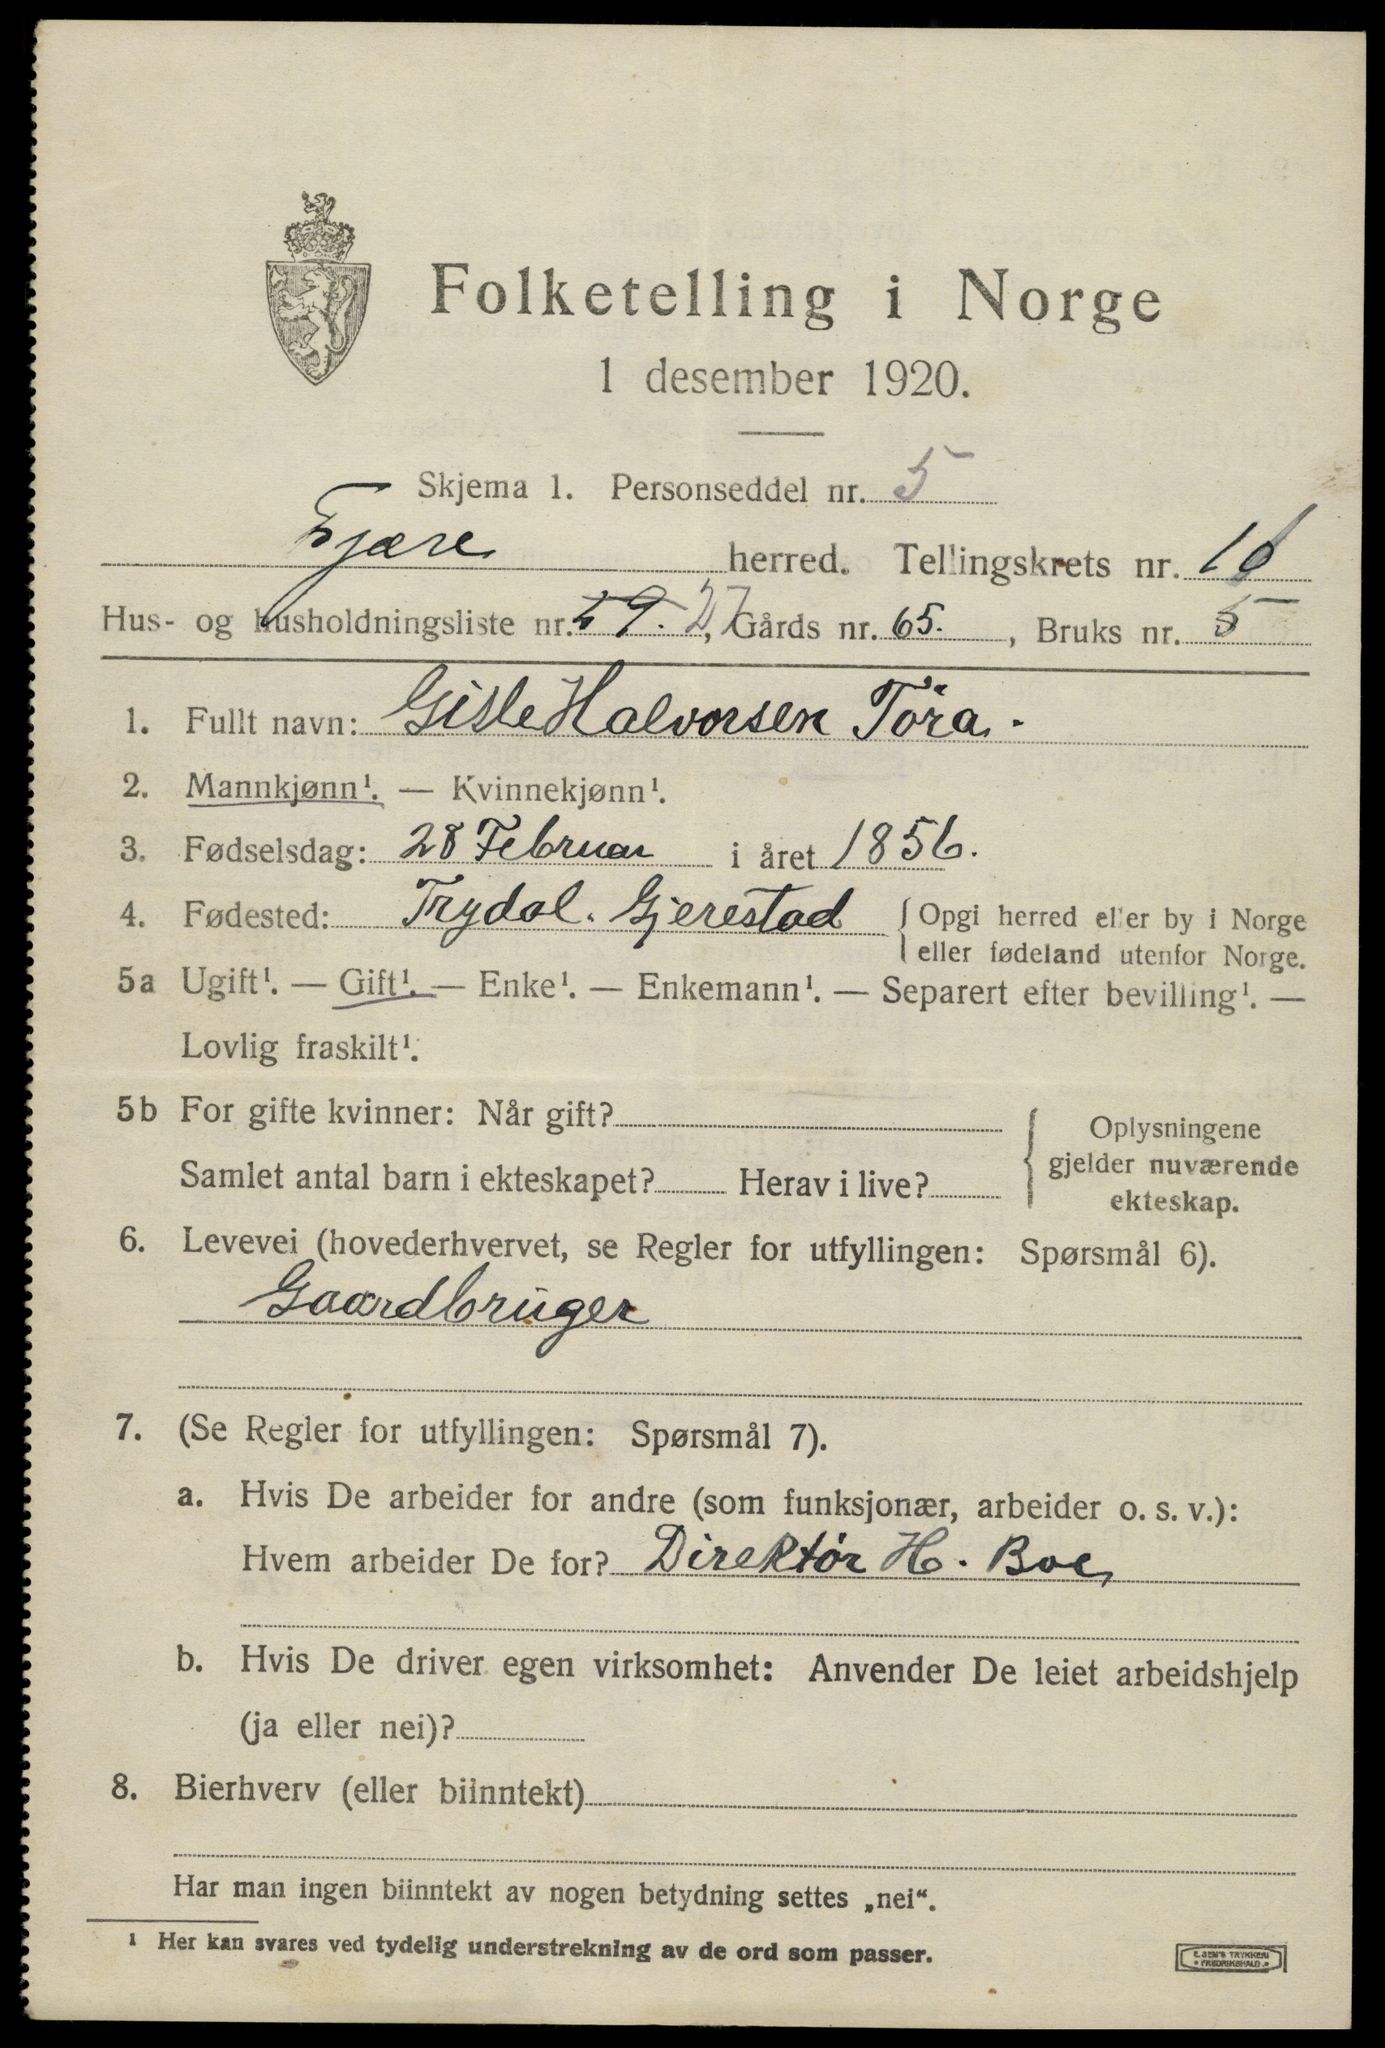 Folketelling i Norge
1 desember 1920.
Skjema 1. Personseddel nr. 5
Fjære herred. Tellingskrets nr. 16
Hus- og husholdningsliste nr. 29. 27, Gårds nr. 65., Bruks nr. 5
1. Fullt navn: Gisle Halvorsen Töra.
2. Mannkjønn¹. — Kvinnekjønn¹.
3. Fødselsdag: 28 Februar i året 1856.
4. Fødested: Trydal. Gjerestad { Opgi herred eller by i Norge
eller fødeland utenfor Norge.
5a Ugift¹. — Gift¹. — Enke¹. — Enkemann¹. — Separert efter bevilling¹. —
Lovlig fraskilt¹.
5b For gifte kvinner: Når gift?
Samlet antal barn i ekteskapet? Herav i live?
{ Oplysningene
gjelder nuværende
ekteskap.
6. Levevei (hovederhvervet, se Regler for utfyllingen: Spørsmål 6).
Gaardbruger
7. (Se Regler for utfyllingen: Spørsmål 7).
a. Hvis De arbeider for andre (som funksjonær, arbeider o. s. v.):
Hvem arbeider De for? Direktör H. Boe
b. Hvis De driver egen virksomhet: Anvender De leiet arbeidshjelp
(ja eller nei)?
8. Bierhverv (eller biinntekt)
Har man ingen biinntekt av nogen betydning settes „nei“.
¹ Her kan svares ved tydelig understrekning av de ord som passer.
E. SEM'S TRYKKERI
* FREDRIKSHALD *